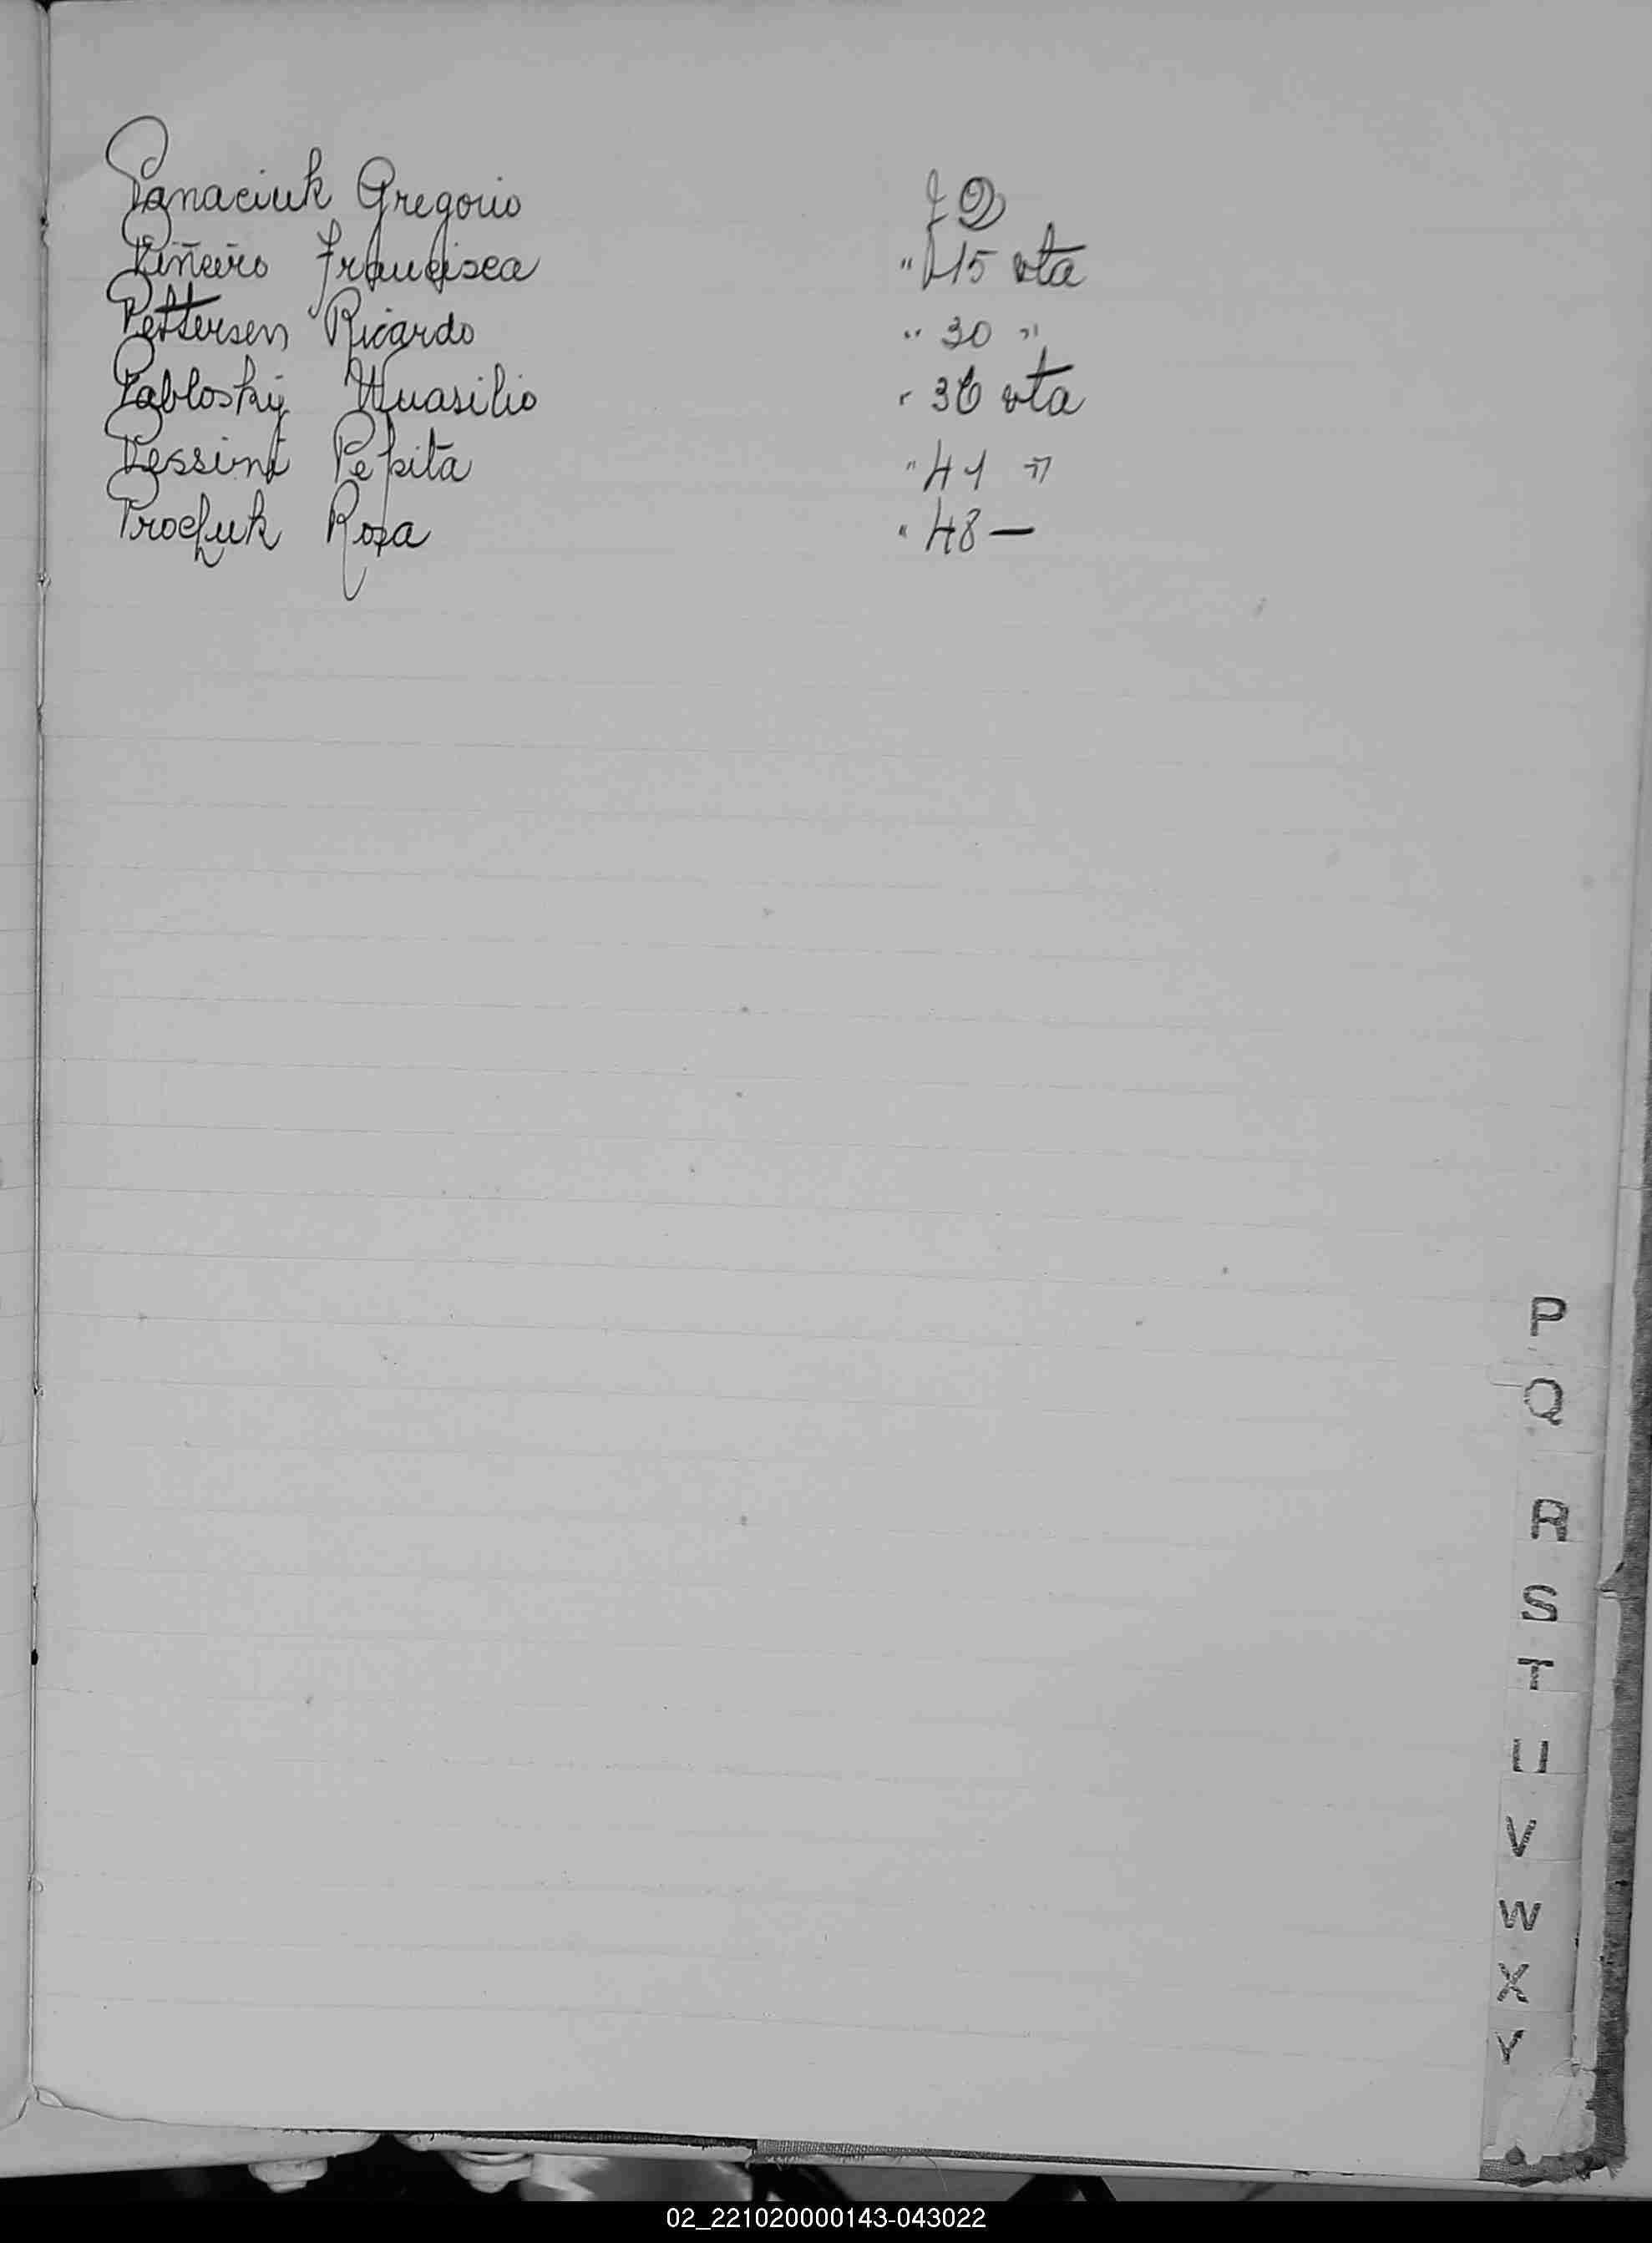 Panaciuk Gregorio f 2
Piñeiro Francisca " 15 vta
Pettersen Ricardo " 30 "
Pabloskij Wuasilio " 36 vta
Pessini Pepita " 41 "
Prochuk Rosa " 48 —
P
Q
R
S
T
U
V
W
X
Y
02_221020000143-043022